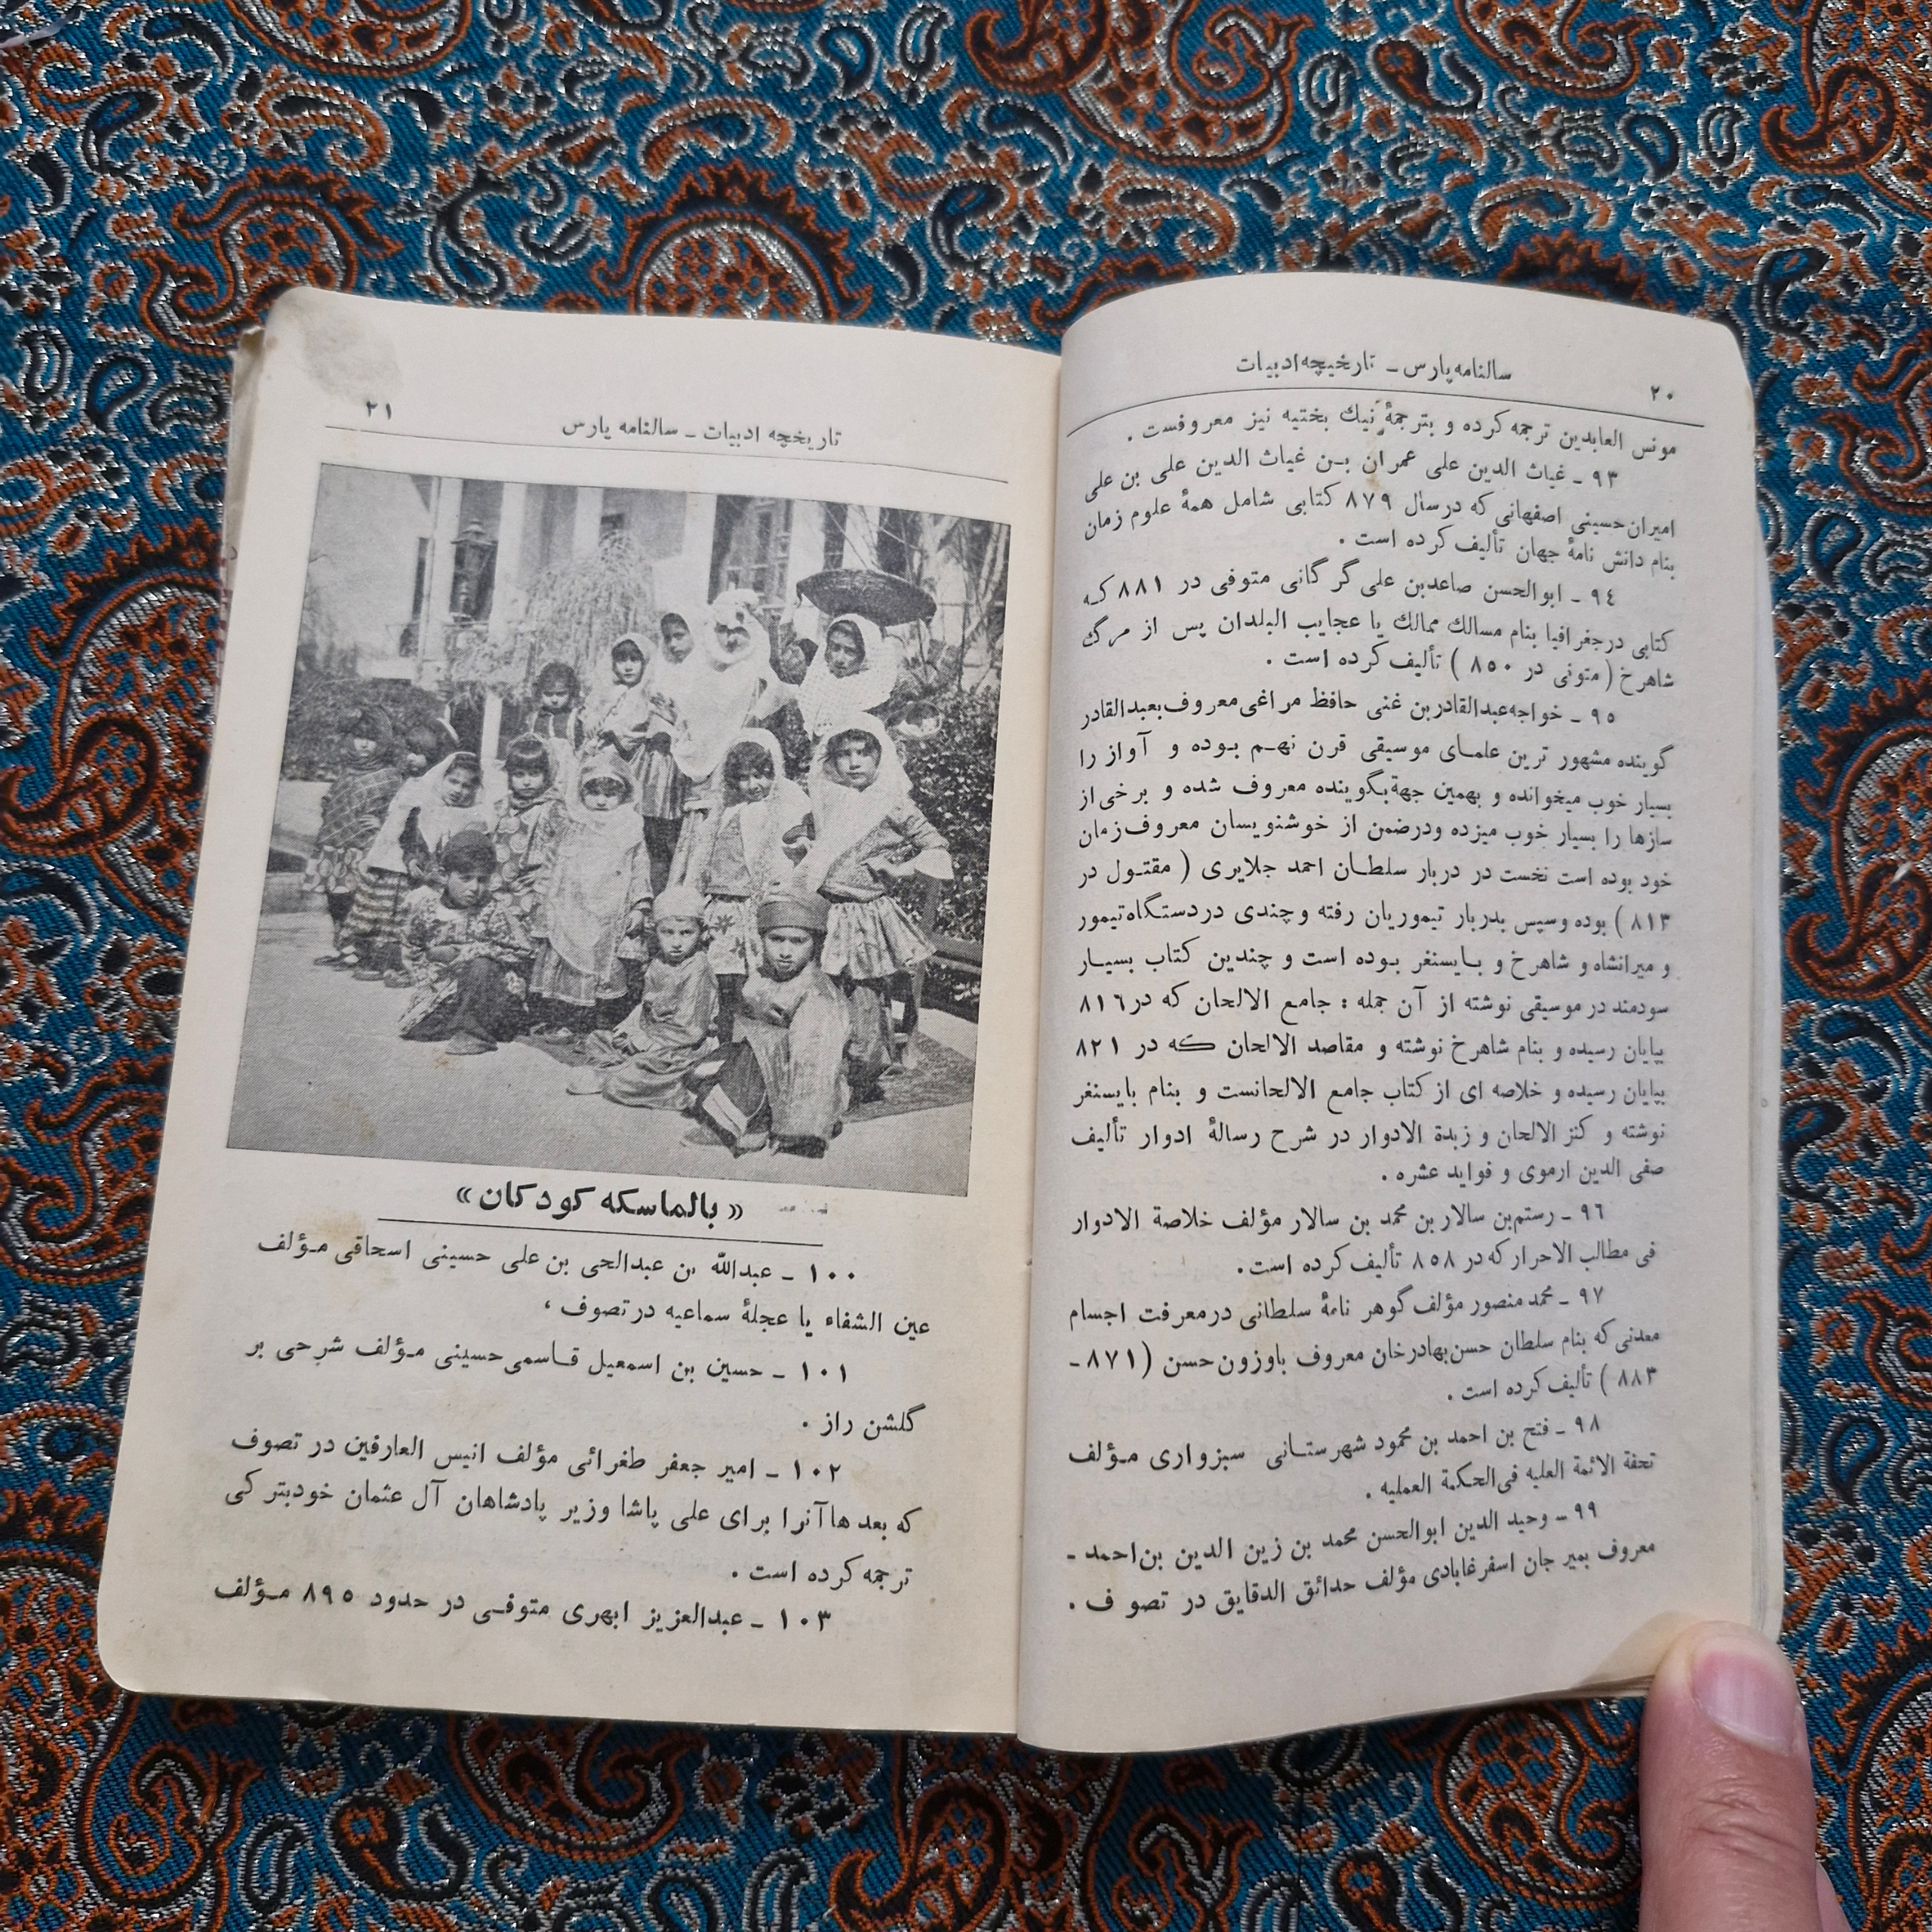 سالنامه پارس ـ تارخیچه ادبیات
۲۰
مونس العابدین ترجمه کرده و بترجمهٔ نیك بختیه نیز معروفست .
۹۳ ـ غیاث الدین علی عمران بـن غیاث الدین علی بن علی
امیران حسینی اصفهانی که در سال ۸۷۹ کتابی شامل همهٔ علوم زمان
بنام دانش نامهٔ جهان تألیف کرده است .
۹٤ ـ ابوالحسن صاعدبن علی گرگانی متوفی در ۸۸۱ کـه
کتابی در جغرافیا بنام مسالك ممالك یا عجایب البلدان پس از مرگ
شاهرخ ( متونی در ۸۵۰ ) تألیف کرده است .
۹۵ ـ خواجه عبدالقادر بن غنی حافظ مراغی معروف بعبدالقادر
گوینده مشهور ترین علمـای موسیقی قرن نهـم بـوده و آواز را
بسیار خوب میخوانده و بهمین جهة بگوینده معروف شده و برخی از
سازها را بسیار خوب میزده ودرضمن از خوشنویسان معروف زمان
خود بوده است نخست در دربار سلطـان احمد جلایری ( مقتـول در
۸۱۳ ) بوده وسپس بدربار تیموریان رفته و چندی در دستگاه تیمور
و میرانشاه و شاهرخ و بـایسنغر بـوده است و چندین کتاب بسیـار
سودمند در موسیقی نوشته از آن جمله : جامع الالحان که در ۸۱٦
بپایان رسیده و بنام شاهرخ نوشته و مقاصد الالحان که در ۸۲۱
بپایان رسیده و خلاصه ای از کتاب جامع الالحانست و بنام بایسنغر
نوشته و کنز الالحان و زبدة الادوار در شرح رسالهٔ ادوار تألیف
صفی الدین ارموی و فواید عشره .
۹٦ ـ رستم بن سالار بن محمد بن سالار مؤلف خلاصة الادوار
فی مطالب الاحرار که در ۸۵۸ تألیف کرده است .
۹۷ ـ محمد منصور مؤلف گوهر نامهٔ سلطانی در معرفت اجسام
معدنی که بنام سلطان حسن بهادرخان معروف باوزون حسن ( ۸۷۱ ـ
۸۸۳ ) تألیف کرده است .
۹۸ ـ فتح بن احمد بن محمود شهرستـانی سبزواری مـؤلف
تحفة الائمة العلیه فی الحکمة العملیه .
۹۹ ـ وحید الدین ابوالحسن محمد بن زین الدین بن احمد ـ
معروف بمیر جان اسفرغابادی مؤلف حدائق الدقایق در تصو ف .
تاریخچه ادبیات ـ سالنامه پارس
۲۱
« بالماسکه کودکان »
۱۰۰ ـ عبدالله بن عبدالحی بن علی حسینی اسحاقی مـؤلف
عین الشفاء یا عجلهٔ سماعیه در تصوف ،
۱۰۱ ـ حسین بن اسمعیل قـاسمی حسینی مـؤلف شرحی بر
گلشن راز .
۱۰۲ ـ امیر جعفر طغرائی مؤلف انیس العارفین در تصوف
که بعد ها آنرا برای علی پاشا وزیر پادشاهان آل عثمان خودبتر کی
ترجمه کرده است .
۱۰۳ ـ عبدالعزیز ابهری متوفـی در حدود ۸۹۵ مـؤلف